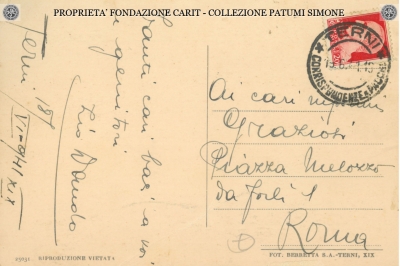 PROPRIETA' FONDAZIONE CARIT - COLLEZIONE PATUMI SIMONE
Terni 18
VI-941 XIX
Tanti cari baci a voi
ai genitori
Zio Danilo
TERNI
CORRISPONDENZE E PACCHI
Ai cari nipoti
Graziosi
Piazza Melozzo
da Forlì 1
Roma
RIPRODUZIONE VIETATA
FOT. BERRETTA S.A.-TERNI, XIX